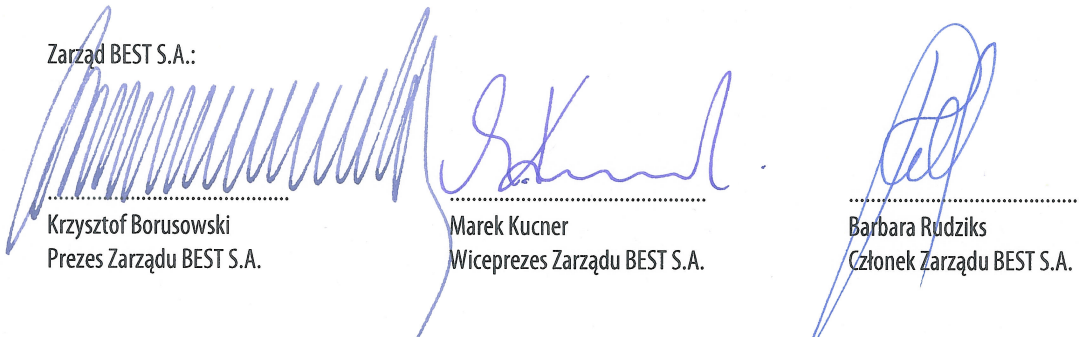 Zarząd BEST S.A.:
Krzysztof Borusowski
Prezes Zarządu BEST S.A.
Marek Kucner
Wiceprezes Zarządu BEST S.A.
Barbara Rudziks
Członek Zarządu BEST S.A.